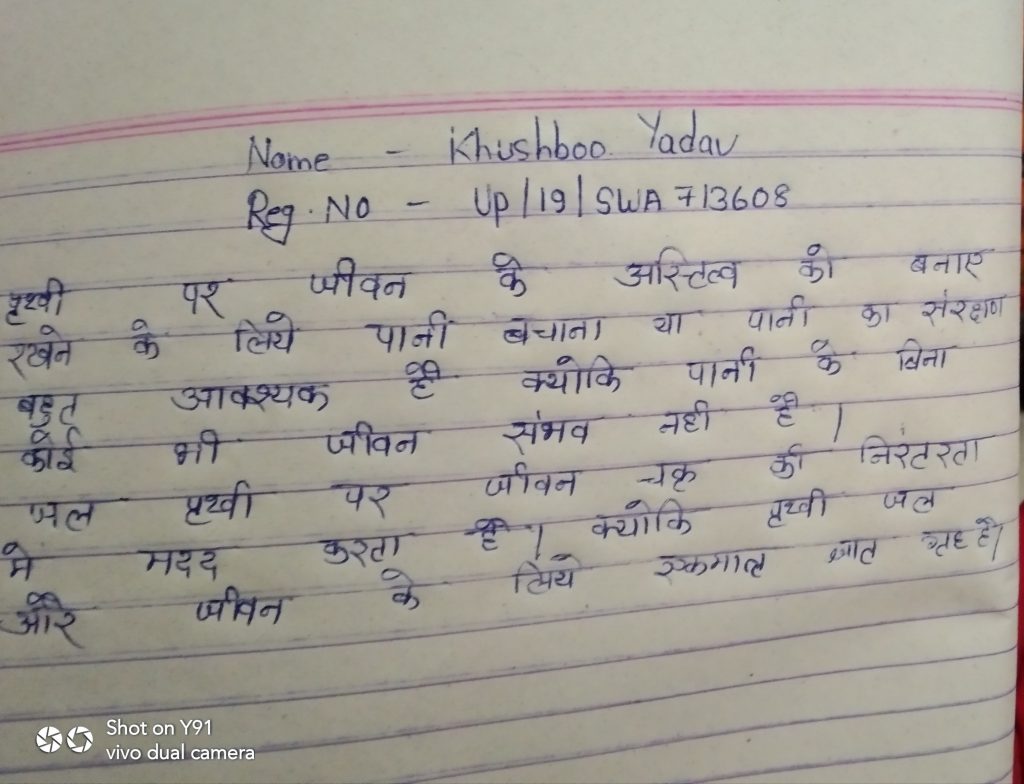 Name - Khushboo Yadav
Reg. No - Up/19/SWA 713608
पृथ्वी पर जीवन के अस्तित्व को बनाए
रखने के लिये पानी बचाना या पानी का संरक्षण
बहुत आवश्यक है क्योकि पानी के बिना
कोई भी जीवन संभव नही है।
जल पृथ्वी पर जीवन चक्र की निरंतरता
मे मदद करता है। क्योकि पृथ्वी जल
और जीवन के लिये एकमात्र ज्ञात ग्रह है।
Shot on Y91
vivo dual camera